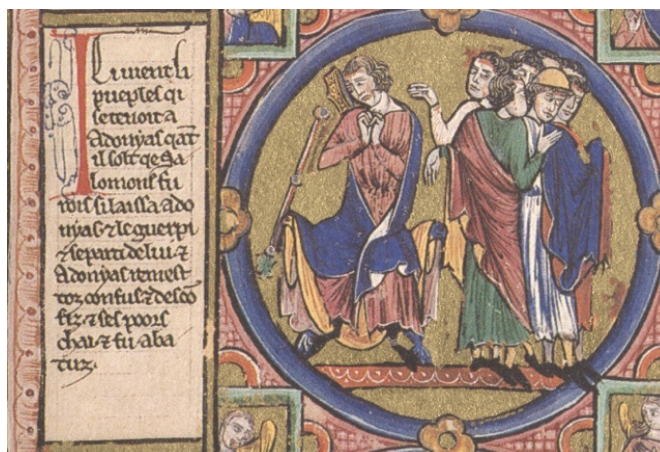 Ici uient li
pueples qi
se tenoit a
Adonyas qāt
il solt qe Sa
lomons fu
rois si laissa Ado
nyas ⁊ le guerpi
⁊ se parti de lui ⁊
Adonyas remest
toz confus ⁊ descō
fiz ⁊ ses poors
chai ⁊ fu aba
tuz.